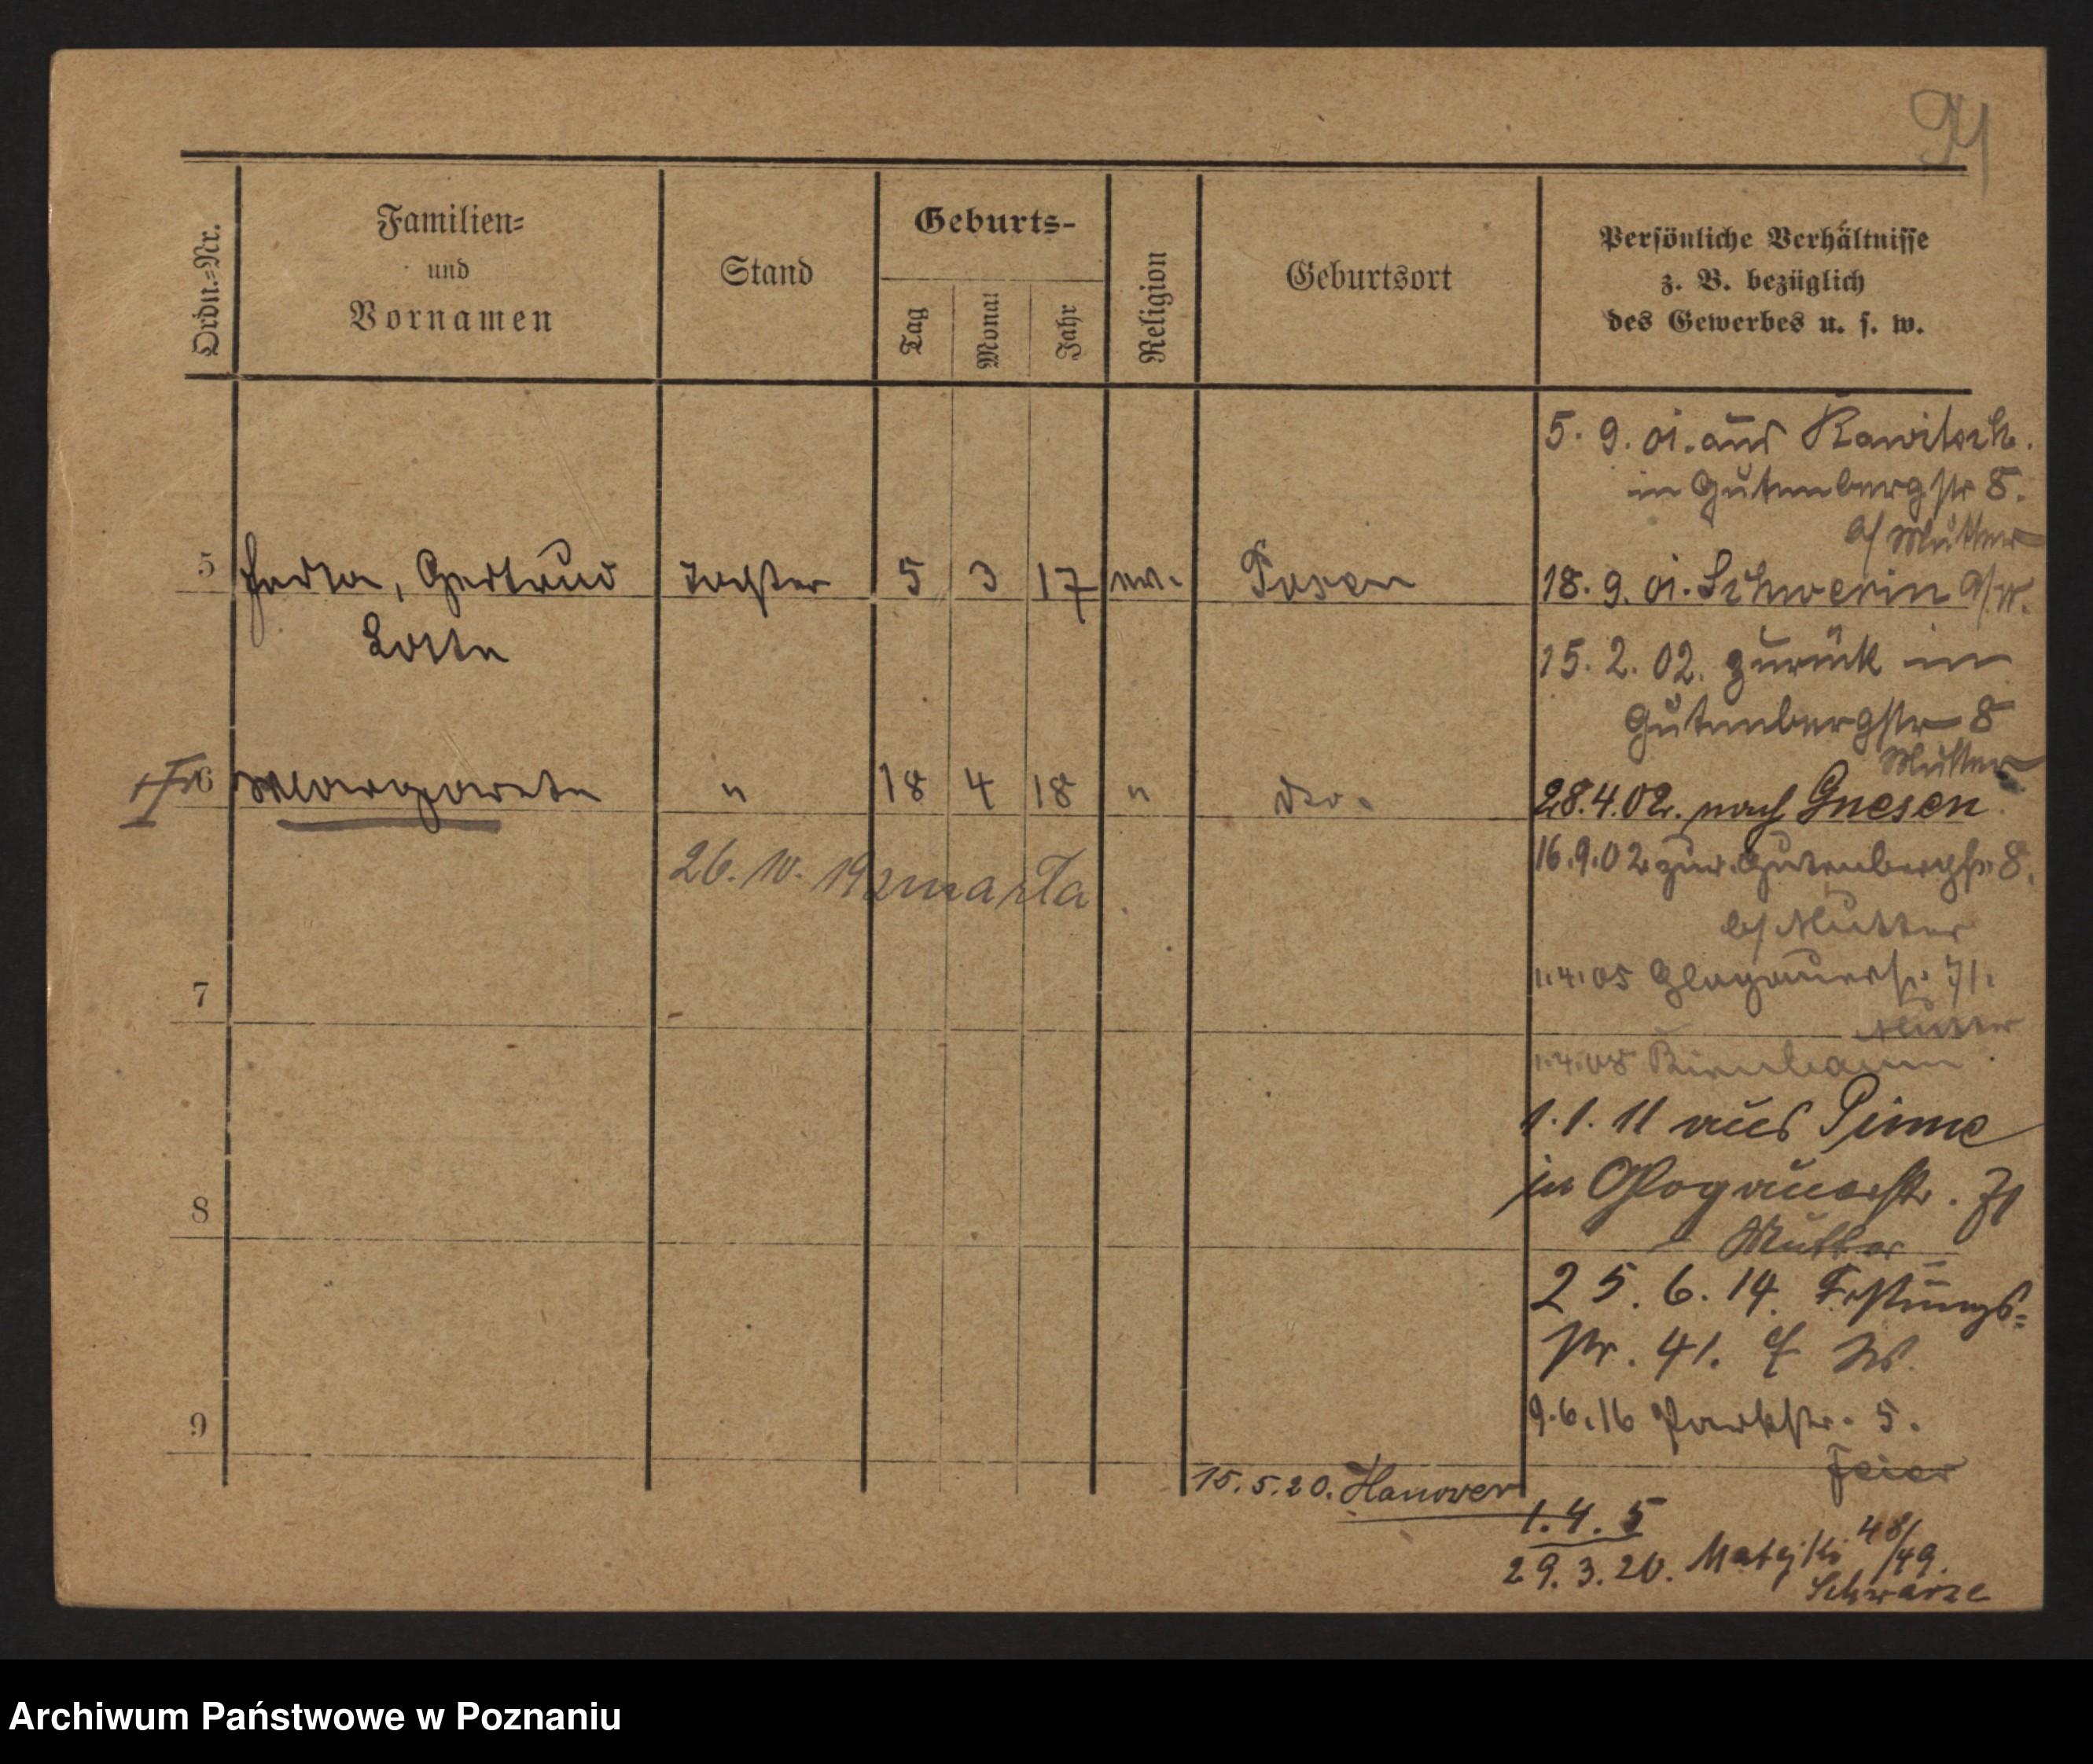 Ordn.=Nr.
Familien=
und
Vornamen
Stand
Geburts-
Tag
Monat
Jahr
Religion
Geburtsort
Persönliche Verhältnisse
z. B. bezüglich
des Gewerbes u. s. w.
5. 9. 01. aus Rawitsch.
in Gutenbergstr 8.
b/ Mutter
5 Gertrud Tochter 5 3 17 ev. Posen
Lotte
18. 9. 01. Schwerin a/W.
15. 2. 02. zurück in
Gutenbergstr 8
Mutter
6 Margarete " 18 4 18 " do.
28. 4. 02. nach Gnesen
26. 10. 19 zmarła.
16. 9. 02 zur. Gutenbergstr 8.
b/ Mutter
1. 4. 05 Glogauerstr. 71.
Mutter
7
1. 4. 08 Birnbaum
1. 1. 11 aus Pinne
in Glogauerstr. 71
Mutter
8
25. 6. 14. Festungs=
str. 41. E W.
9. 6. 16 Parkstr. 5.
Feier
9
15. 5. 20. Hanower
1. 4. 5
29. 3. 20. Matejki 48/49.
Schwarze
Archiwum Państwowe w Poznaniu